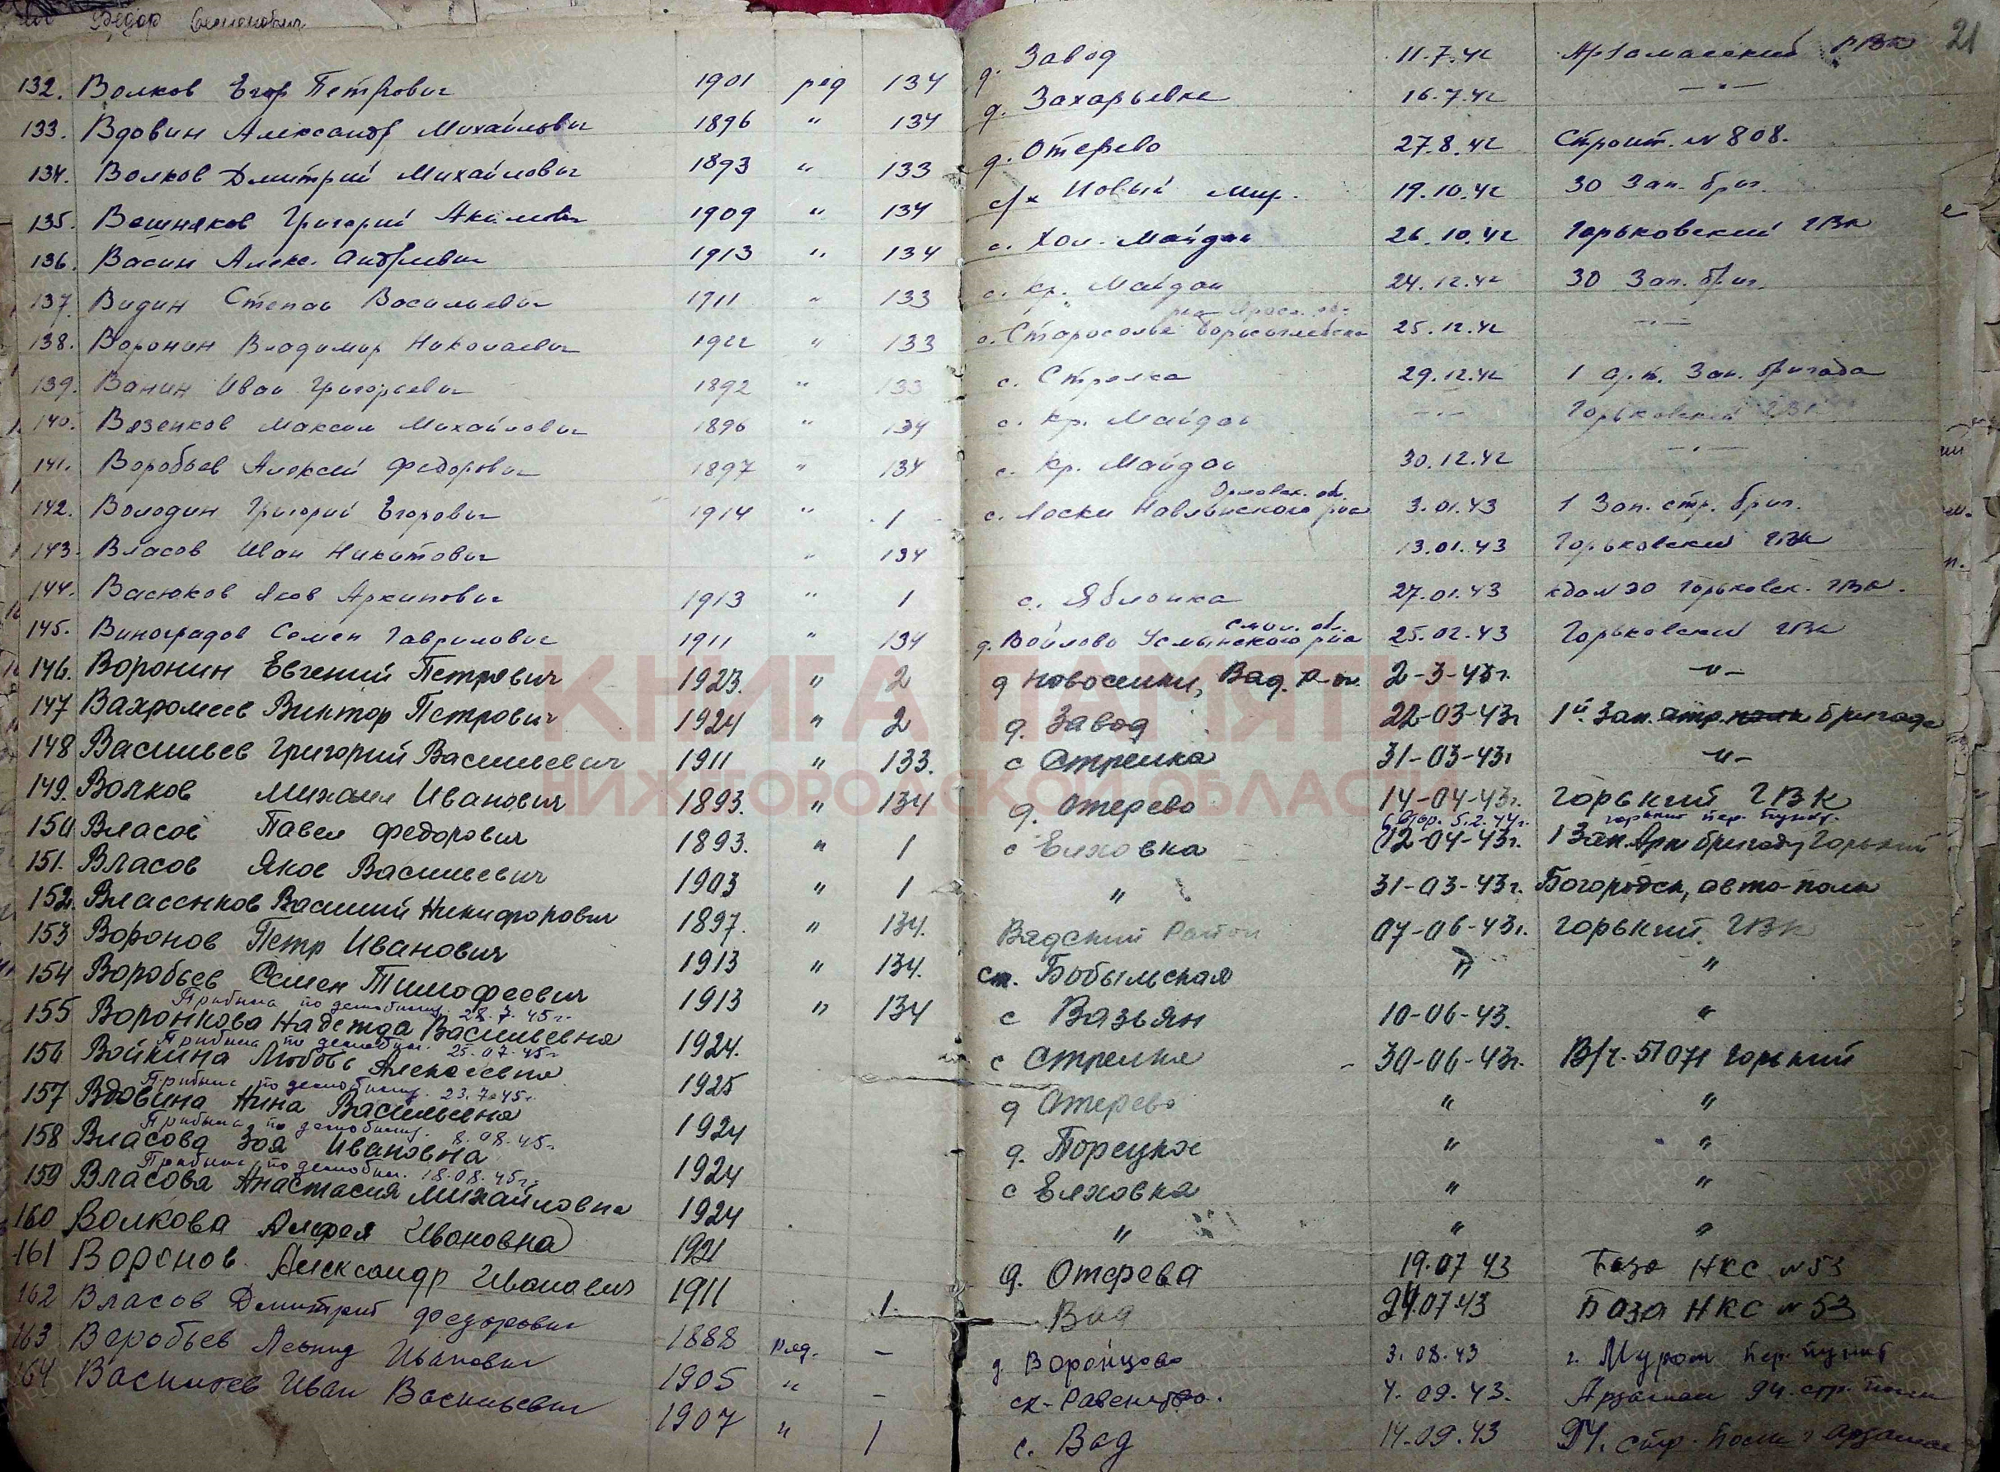 Федор Семенович
21
132. Волков Егор Петрович 1901 ряд 134 д. Завод 11.7.42 Арзамасский РВК
133. Вдовин Александр Михайлович 1896 " 134 д. Захарьевка 16.7.42 —"—
134. Волков Дмитрий Михайлович 1893 " 133 д. Отерево 27.8.42 Строит. № 808.
135. Вешняков Григорий Акимович 1909 " 134 с/х Новый Мир. 19.10.42 30 Зап. бриг.
136. Васин Алекс. Андреевич 1913 " 134 с. Хол. Майдан 26.10.42 Горьковский ГВК
137 Видин Степан Васильевич 1911 " 133 с. Кр. Майдан 24.12.42 30 Зап. бриг.
138. Воронин Владимир Николаевич 1922 " 133 с. Староселье Борисоглебск 25.12.42 —"—
139. Ванин Иван Григорьевич 1892 " 133 с. Стрелка 29.12.42 1 арт. Зап. бригада
140. Вязенков Максим Михайлович 1896 " 134 с. Кр. Майдан —"— Горьковский ГВК
141. Воробьев Алексей Федорович 1897 " 134 с. Кр. Майдан 30.12.42 —"—
Орловск. об.
142. Володин Григорий Егорович 1914 " 1 с. Лоски Навлинского р-на 3.01.43 1 Зап. стр. бриг.
143. Власов Иван Никитович " 134 13.01.43 Горьковский ГВК
144. Васюков Яков Архипович 1913 " 1 с. Яблонка 27.01.43 Горьковск. ГВК.
Смол. об.
145. Виноградов Семен Гаврилович 1911 " 134 д. Войлово Усмынского р-на 25.02.43 Горьковский ГВК
146. Воронин Евгений Петрович 1923. " 2 д Новоселки, Вад. р-он. 2-3-43г. —"—
147 Вахромеев Виктор Петрович 1924 " 2 д. Завод 22-03-43г 1й Зап. стр. полк бригада
148 Васильев Григорий Васильевич 1911 " 133. с Стрелка 31-03-43г —"—
149. Волков Михаил Иванович 1893. " 134 д. Отерево 14-04-43г. Горький ГВК
Втор. 5.2.44г. Горький пер. пункт.
150 Власов Павел Федорович 1893. " 1 с Елховка 12-04-43г. 1 Зап. Арт бригаду Горький
151. Власов Яков Васильевич 1903 " 1 " 31-03-43г. Богородск, авто-полк
152. Влассиков Василий Никифорович 1897. " 134. Вадский Район 07-06-43г. Горький. ГВК
153 Воронов Петр Иванович 1913 " 134. ст. Бобыльская " "
154 Воробьев Семен Тимофеевич 1913 " 134 с Вазьян 10-06-43. "
Прибыла по демобилиз. 28.7.45г.
155 Воронкова Надежда Васильевна 1924. с Стрелка 30-06-43г. В/ч. 51071 Горький
Прибыла по демобил. 25.07.45г
156 Войкина Любовь Алексеевна 1925 д Отерево " "
Прибыла по демобилиз. 23.7.45г.
157 Вдовина Нина Васильевна 1924 д. Порецкое " "
Прибыла по демобилиз. 8.08.45г.
158 Власова Зоя Ивановна 1924 с Елховка " "
Прибыла по демобил. 18.08.45г.
159 Власова Анастасия Михайловна 1924 " " "
160 Волкова Ивановна 1921 д. Отерева 19.07 43 База НКС № 53
161 Воронов Александр Иванович 1911 1 Вад 24.07 43 База НКС № 53
162 Власов Дмитрий Федорович 1888 ряд. — д Воронцово 3.08.43 г. Муром пер. пункт
163 Воробьев Леонид Иванович 1905 " — ск. Равенство. 4.09.43. Арзамас 94. стр. полк
164 Васильев Иван Васильевич 1907 " 1 с. Вад 14.09.43 94. стр. полк г Арзамас
КНИГА ПАМЯТИ
НИЖЕГОРОДСКОЙ ОБЛАСТИ